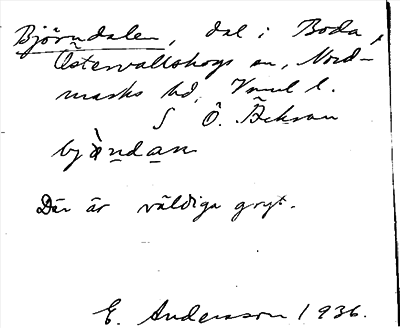 Björndalen, dal i Boda,
Östervallskogs sn, Nord-
marks hd, Vrml l.
S Ö. Öckson
bjǿndan
Där är väldiga gryt.
E. Andersson 1936.